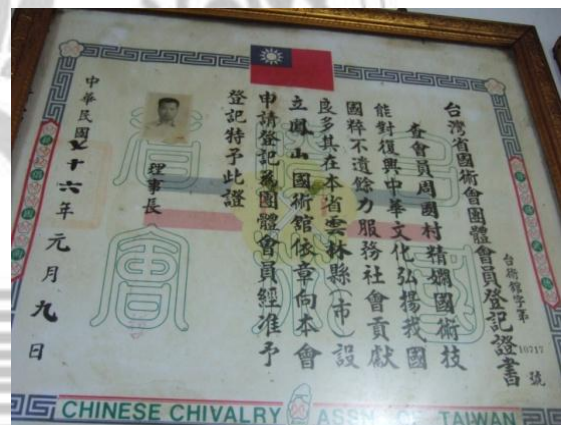 台術館字第10717號
台灣省國術會團體會員登記證書
查會員周國村精嫻國術技
能對復興中華文化弘揚我國
國粹不遺餘力服務社會貢獻
良多其在本省雲林縣(市)設
立鳳山國術館依章向本會
申請登記為團體會員經准予
登記特予此證
理事長
中華民國十六年元月九日
CHINESE CHIVALRY ASSN. OF TAIWAN